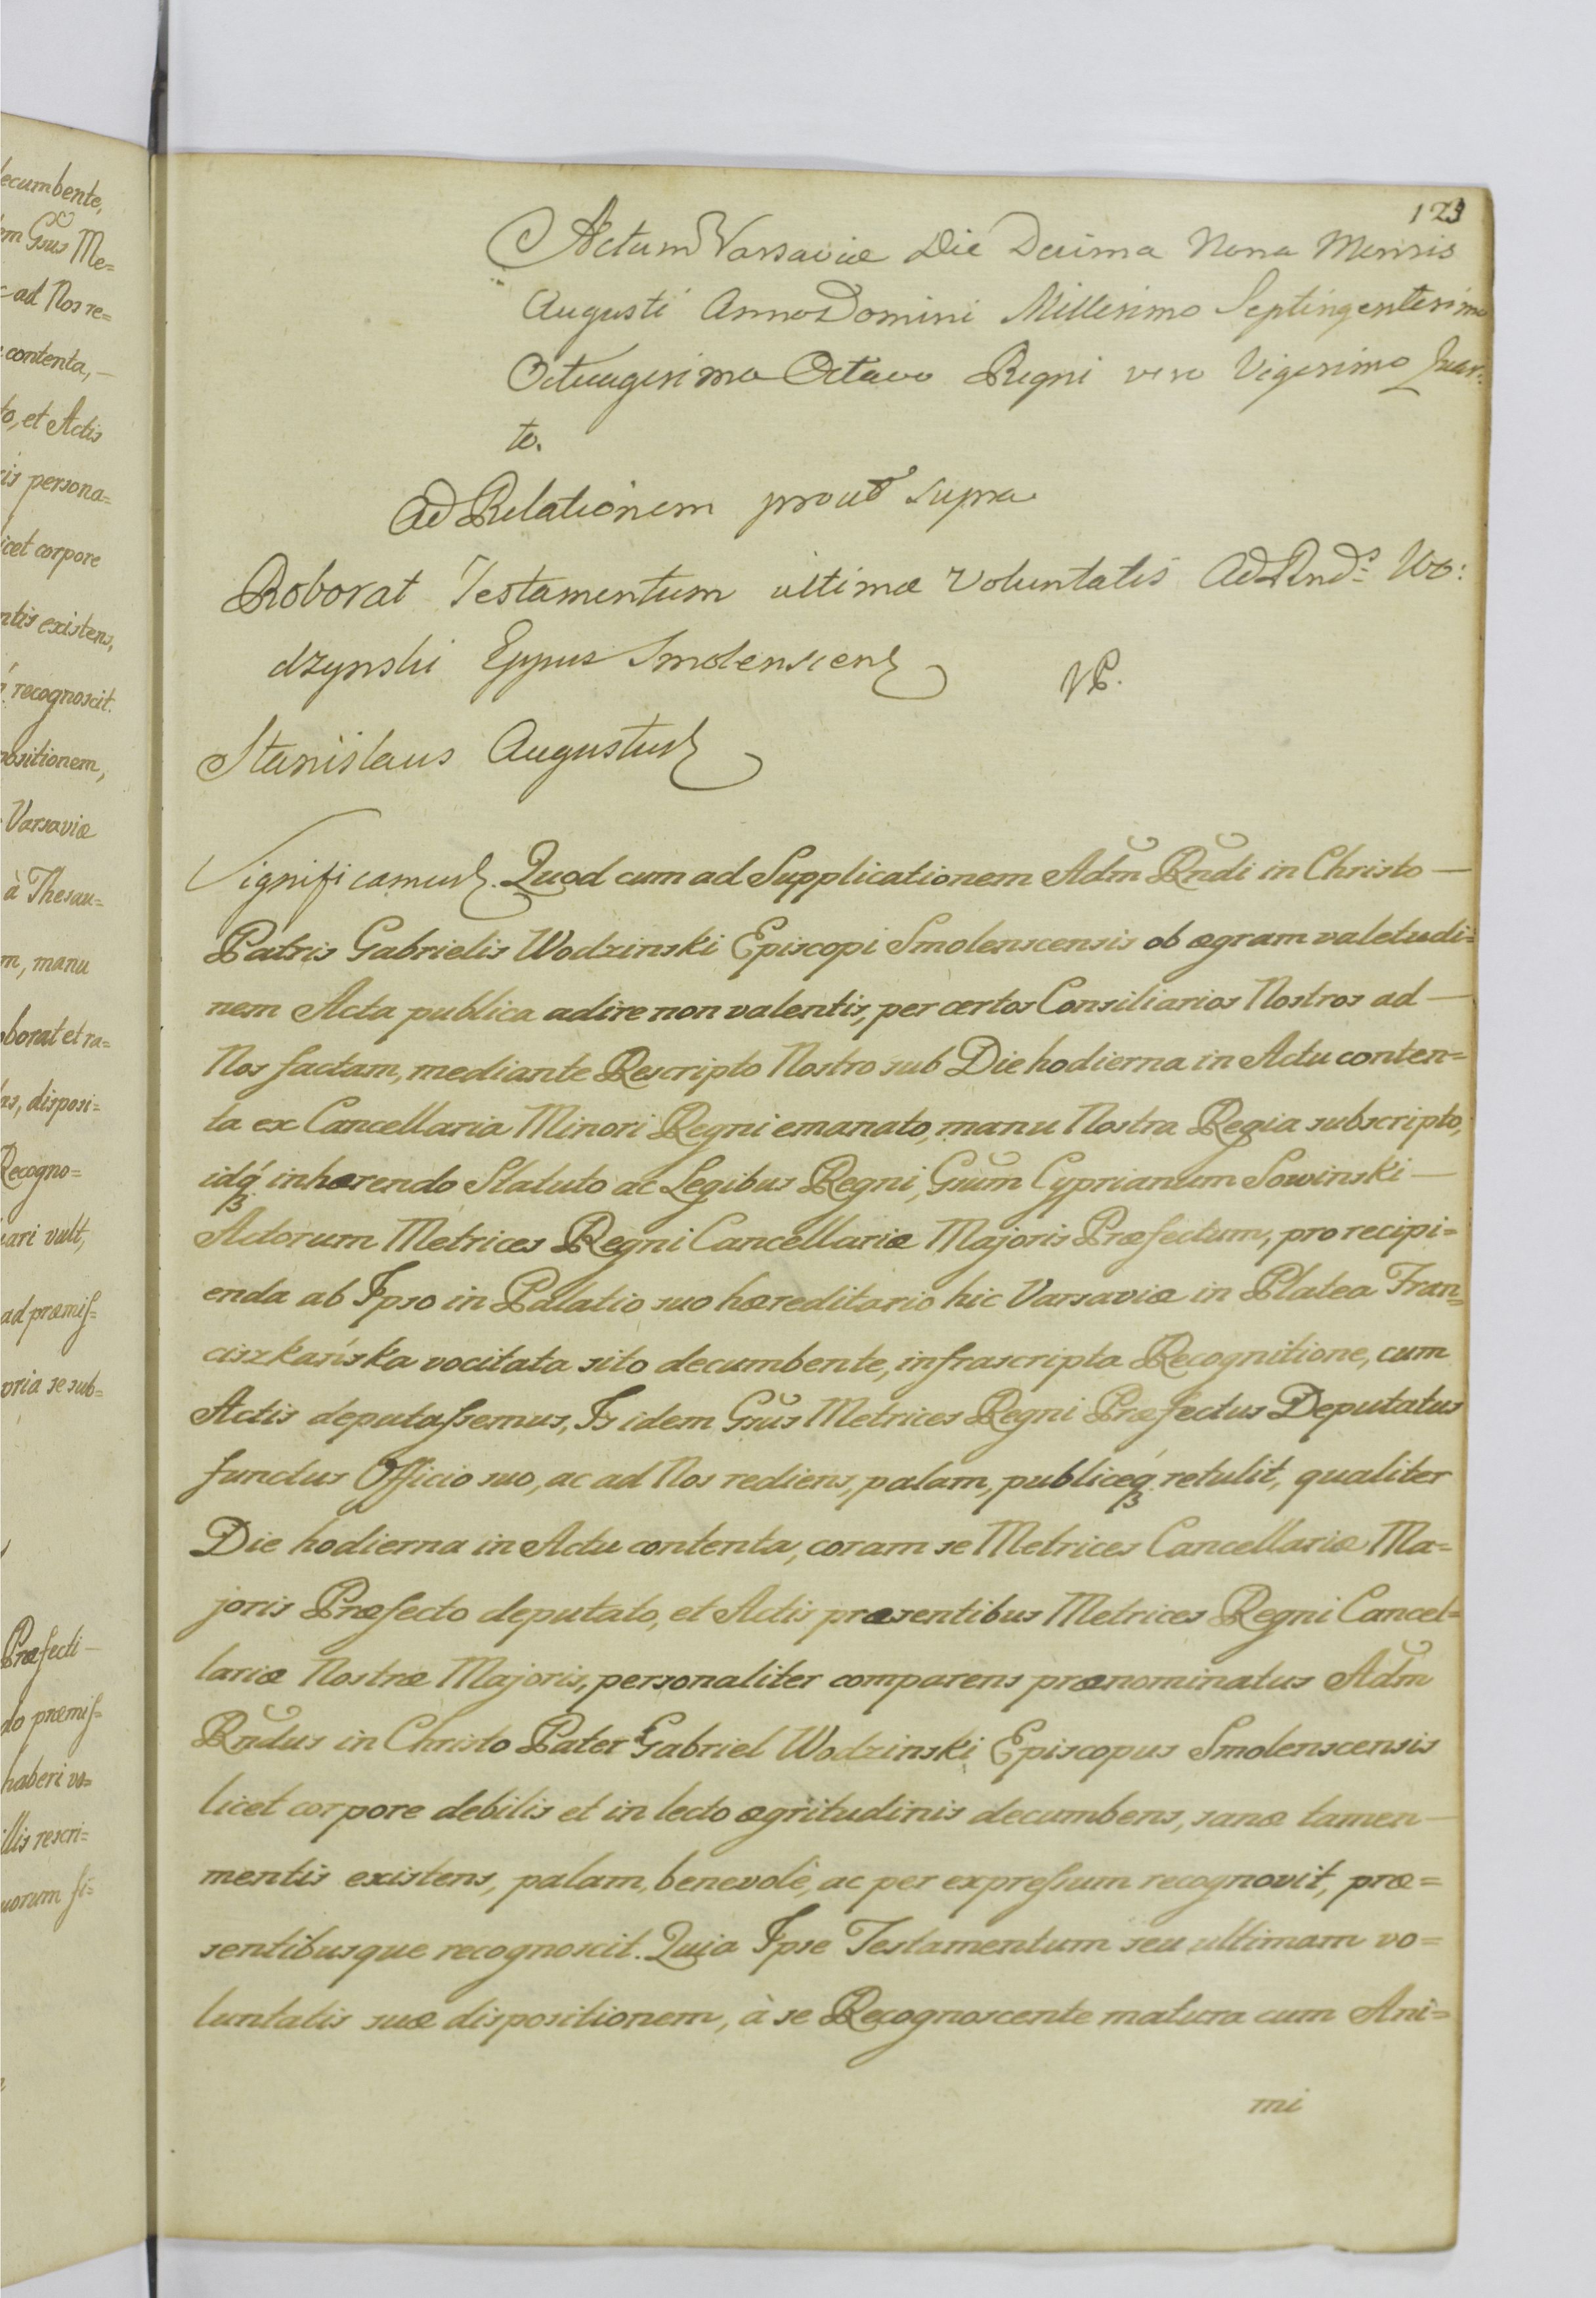 ecumbente,
em Gsus Me=
c ad Nos re=
contenta, —
to, et Actis
is persona=
icet corpore
ntis existens,
recognoscit.
positionem,
Varsaviæ
à Thesau=
m, manu
oborat et ra=
as, disposi=
Recogno=
ari vult,
ad præmis=
oria se sub=
Præfecti —
do præmis=
haberi vo=
illis rescri=
uorum fi=
123
Actum Varsaviæ Die Decima Nona Mensis
Augusti Anno Domini Millesimo Septingentesimo
Octuagesimo Octavo Regni vero Vigesimo Quar:
to.
Ad Relationem prout supra
Roborat Testamentum ultimæ voluntatis Ad Rnds Wo:
dzynski Eppus Smolenscens
Stanislaus Augustus
Significamus. Quod cum ad Supplicationem Adm Rndi in Christo —
Patris Gabrielis Wodzinski Episcopi Smolenscensis ob ægram valetudi=
nem Acta publica adire non valentis, per certos Consiliarios Nostros ad —
Nos factam, mediante Rescripto Nostro sub Die hodierna in Actu conten=
ta ex Cancellaria Minori Regni emanato, manu Nostra Regia subscripto,
idq́ inhærendo Statuto ac Legibus Regni, Gsum Cyprianum Sowinski —
Actorum Metrices Regni Cancellariæ Majoris Præfectum, pro recipi=
enda ab Ipso in Palatio suo hæreditario hic Varsaviæ in Platea Fran=
ciszkańska vocitata sito decumbente, infrascripta Recognitione, cum
Actis deputassemus, Is idem Gsus Metrices Regni Præfectus Deputatus
functus Officio suo, ac ad Nos rediens, palam, publiceq́ retulit, qualiter
Die hodierna in Actu contenta, coram se Metrices Cancellariæ Ma=
joris Præfecto deputato, et Actis præsentibus Metrices Regni Cancel=
lariæ Nostræ Majoris, personaliter comparens prænominatus Adm
Rndus in Christo Pater Gabriel Wodzinski Episcopus Smolenscensis
licet corpore debilis et in lecto ægritudinis decumbens, sanæ tamen —
mentis existens, palam, benevolè, ac per expressum recognovit, præ=
sentibusque recognoscit. Quia Ipse Testamentum seu ultimam vo=
luntatis suæ dispositionem, à se Recognoscente matura cum Ani=
mi